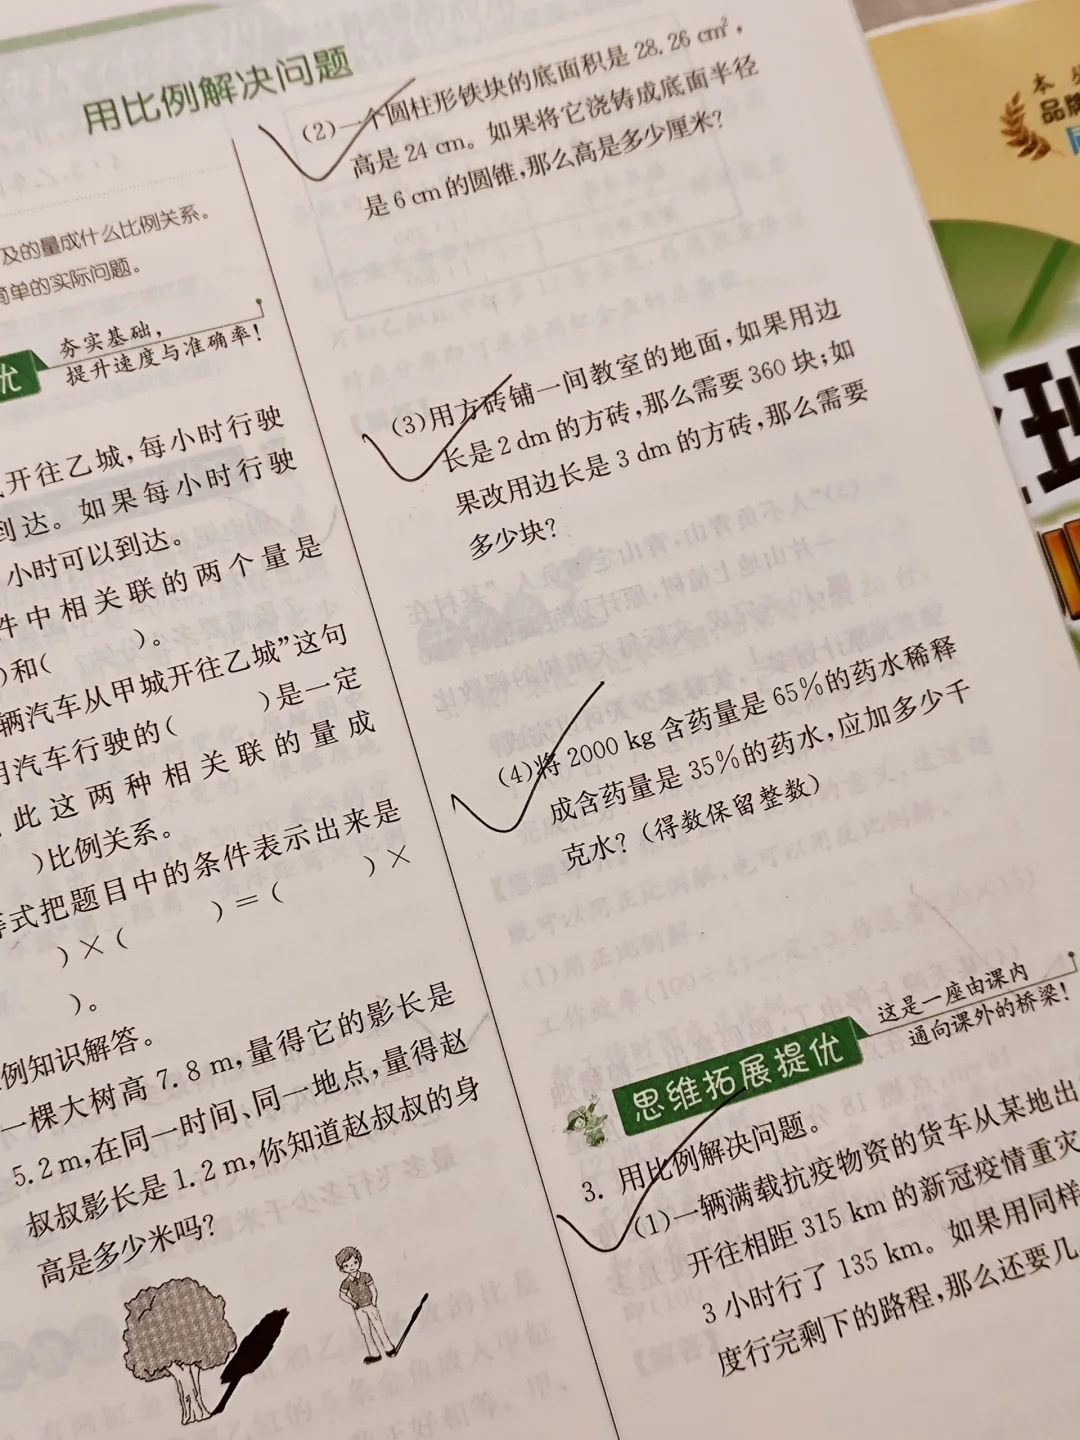 用比例解决问题
及的量成什么比例关系。
简单的实际问题。
优
夯实基础,
提升速度与准确率!
开往乙城,每小时行驶
到达。如果每小时行驶
小时可以到达。
件中相关联的两个量是
)和(        )。
辆汽车从甲城开往乙城”这句
明汽车行驶的(        )是一定
此这两种相关联的量成
)比例关系。
等式把题目中的条件表示出来是
)×(        )=(        )×
)。
例知识解答。
一棵大树高 7.8 m,量得它的影长是
5.2 m,在同一时间、同一地点,量得赵
叔叔影长是 1.2 m,你知道赵叔叔的身
高是多少米吗?
(2)一个圆柱形铁块的底面积是 28.26 cm²,
高是 24 cm。如果将它浇铸成底面半径
是 6 cm 的圆锥,那么高是多少厘米?
(3)用方砖铺一间教室的地面,如果用边
长是 2 dm 的方砖,那么需要 360 块;如
果改用边长是 3 dm 的方砖,那么需要
多少块?
(4)将 2000 kg 含药量是 65%的药水稀释
成含药量是 35%的药水,应加多少千
克水?(得数保留整数)
思维拓展提优
这是一座由课内
通向课外的桥梁!
3. 用比例解决问题。
(1)一辆满载抗疫物资的货车从某地出
开往相距 315 km 的新冠疫情重灾
3 小时行了 135 km。如果用同样
度行完剩下的路程,那么还要几
本
品牌
同
班